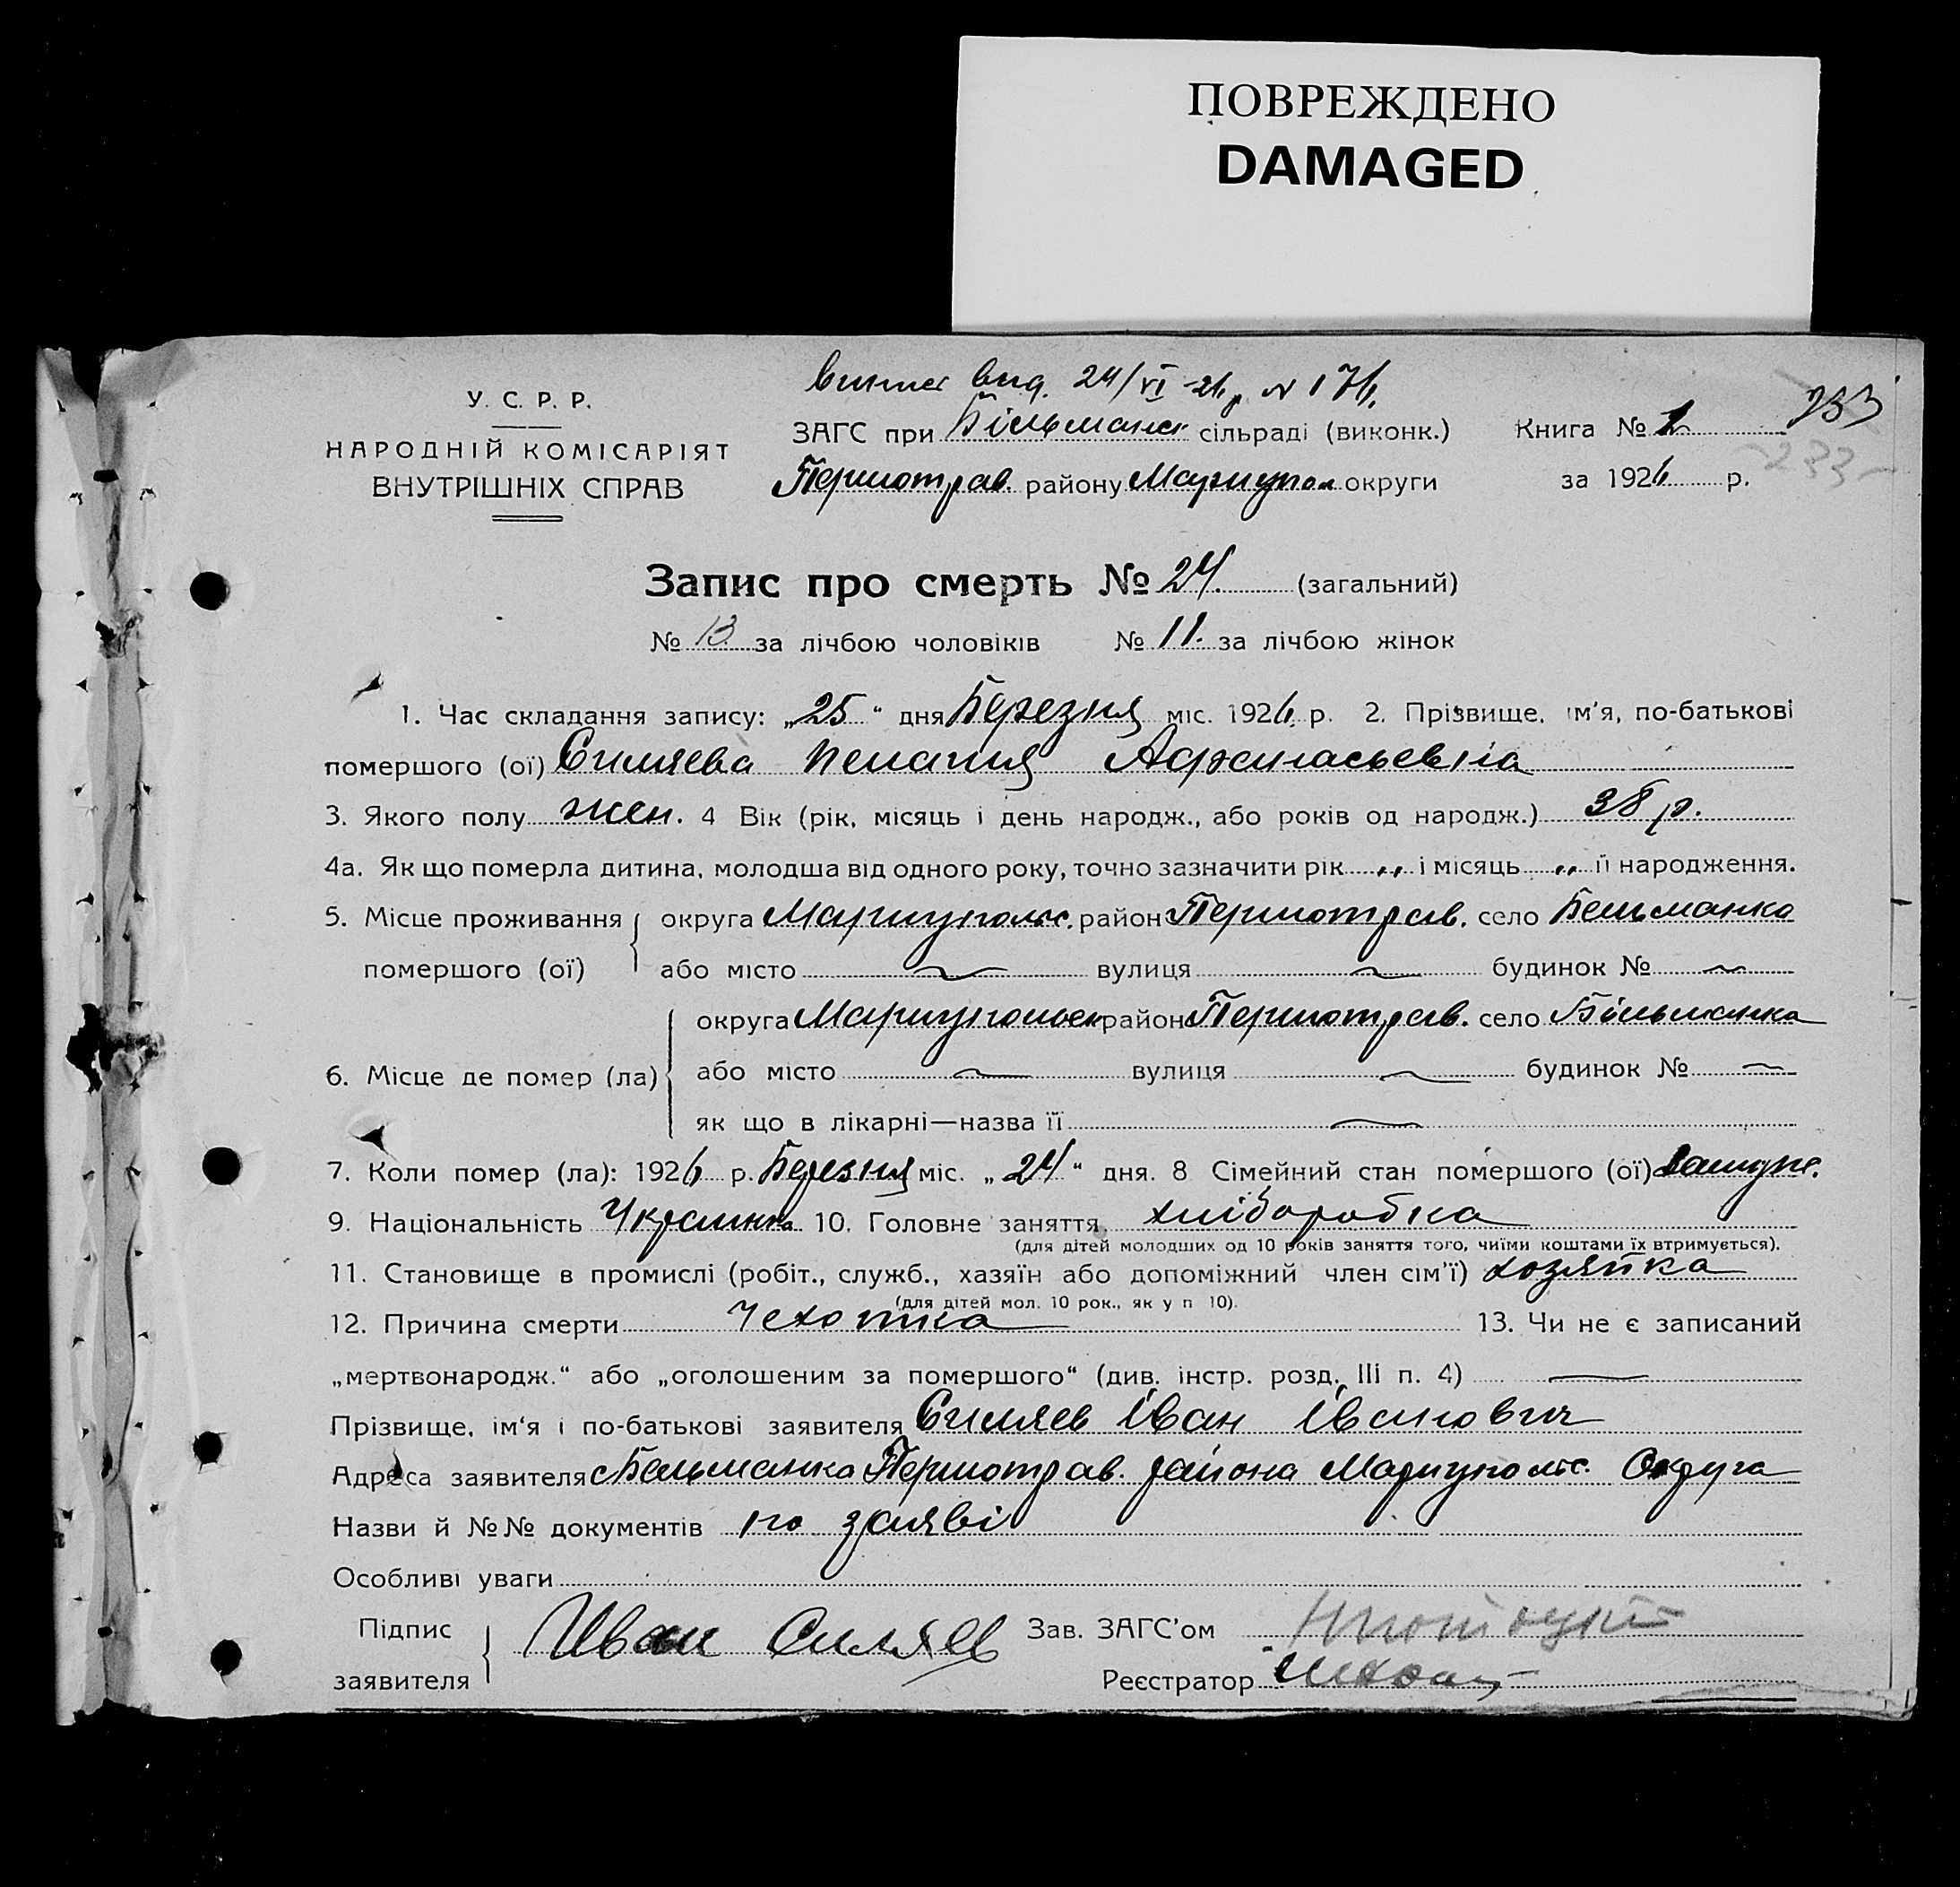 ПОВРЕЖДЕНО
DAMAGED
24/VI-26р № 176.
У. С. Р. Р.
НАРОДНІЙ КОМІСАРІЯТ
ВНУТРІШНІХ СПРАВ
ЗАГС при Більманск сільраді (виконк.)
Першотрав. району Маріупол округи
Книга № 1 233
233
за 1926 р.
Запис про смерть № 24. (загальний)
№ 13 за лічбою чоловіків № 11. за лічбою жінок
1. Час складання запису: „25“ дня Березня міс. 1926 р. 2. Прізвище, ім'я, по-батькові
помершого (ої) Силяева Пелагия Афанасьевна
3. Якого полу жен. 4 Вік (рік, місяць і день народж., або років од народж.) 38 р.
4а. Як що померла дитина, молодша від одного року, точно зазначити рік „ і місяць „ її народження.
5. Місце проживання округа Маріупольс. район Першотрав. село Бельманка
помершого (ої) або місто — вулиця — будинок № —
округа Маріупольск район Першотрав. село Більманка
6. Місце де помер (ла) або місто — вулиця — будинок № —
як що в лікарні—назва її —
7. Коли помер (ла): 1926 р. Березня міс. „24“ дня. 8 Сімейний стан помершого (ої) замужс.
9. Національність Украинка 10. Головне заняття хліборобка
(для дітей молодших од 10 років заняття того, чиїми коштами їх втримується).
11. Становище в промислі (робіт., служб., хазяїн або допоміжний член сім'ї) хозяйка
(для дітей мол. 10 рок., як у п 10).
12. Причина смерти Чехотка 13. Чи не є записаний
„мертвонародж.“ або „оголошеним за помершого“ (див. інстр. розд. III п. 4) —
Прізвище, ім'я і по-батькові заявителя Силяев Іван Іванович
Адреса заявителя с Бельманка Першотрав. района Мариупольс. Округа
Назви й №№ документів по заяві
Особливі уваги
Підпис
заявителя Иван Силяев
Зав. ЗАГС'ом
Реєстратор